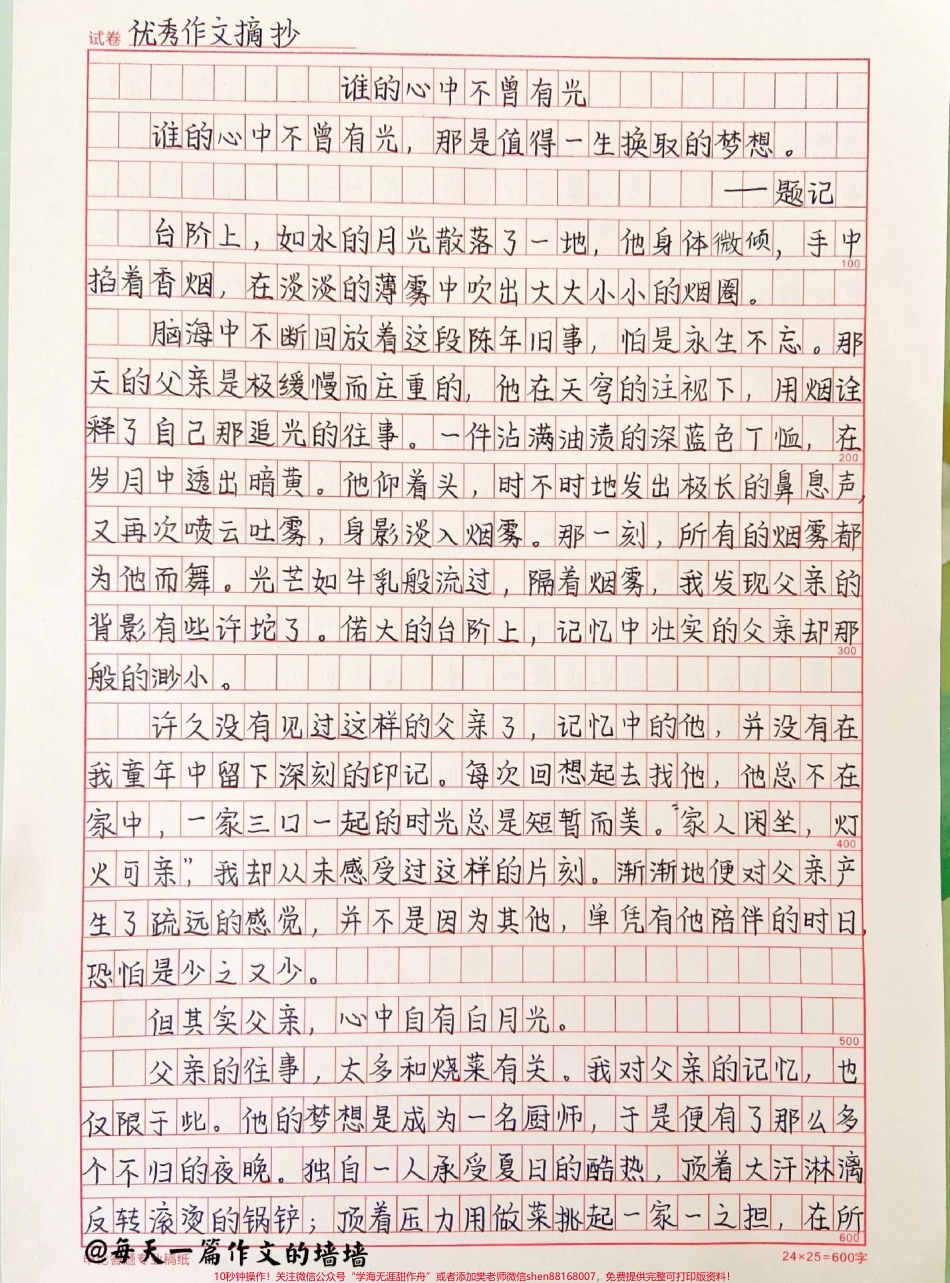 试卷 优秀作文摘抄
谁的心中不曾有光
谁的心中不曾有光，那是值得一生换取的梦想。
——题记
台阶上，如水的月光散落了一地，他身体微倾，手中
100
掐着香烟，在淡淡的薄雾中吹出大大小小的烟圈。
脑海中不断回放着这段陈年旧事，怕是永生不忘。那
天的父亲是极缓慢而庄重的，他在天穹的注视下，用烟诠
释了自己那追光的往事。一件沾满油渍的深蓝色T恤，在
200
岁月中透出暗黄。他仰着头，时不时地发出极长的鼻息声，
又再次喷云吐雾，身影淡入烟雾。那一刻，所有的烟雾都
为他而舞。光芒如牛乳般流过，隔着烟雾，我发现父亲的
背影有些许坨了。偌大的台阶上，记忆中壮实的父亲却那
300
般的渺小。
许久没有见过这样的父亲了，记忆中的他，并没有在
我童年中留下深刻的印记。每次回想起去找他，他总不在
家中，一家三口一起的时光总是短暂而美。“家人闲坐，灯
400
火可亲”，我却从未感受过这样的片刻。渐渐地便对父亲产
生了疏远的感觉，并不是因为其他，单凭有他陪伴的时日，
恐怕是少之又少。
但其实父亲，心中自有白月光。
500
父亲的往事，太多和烧菜有关。我对父亲的记忆，也
仅限于此。他的梦想是成为一名厨师，于是便有了那么多
个不归的夜晚。独自一人承受夏日的酷热，顶着大汗淋漓
反转滚烫的锅铲；顶着压力用做菜挑起一家一之担，在所
600
@每天一篇作文的墙墙
24×25=600字
10秒钟操作！关注微信公众号“学海无涯甜作舟”或者添加樊老师微信shen88168007，免费提供完整可打印版资料！